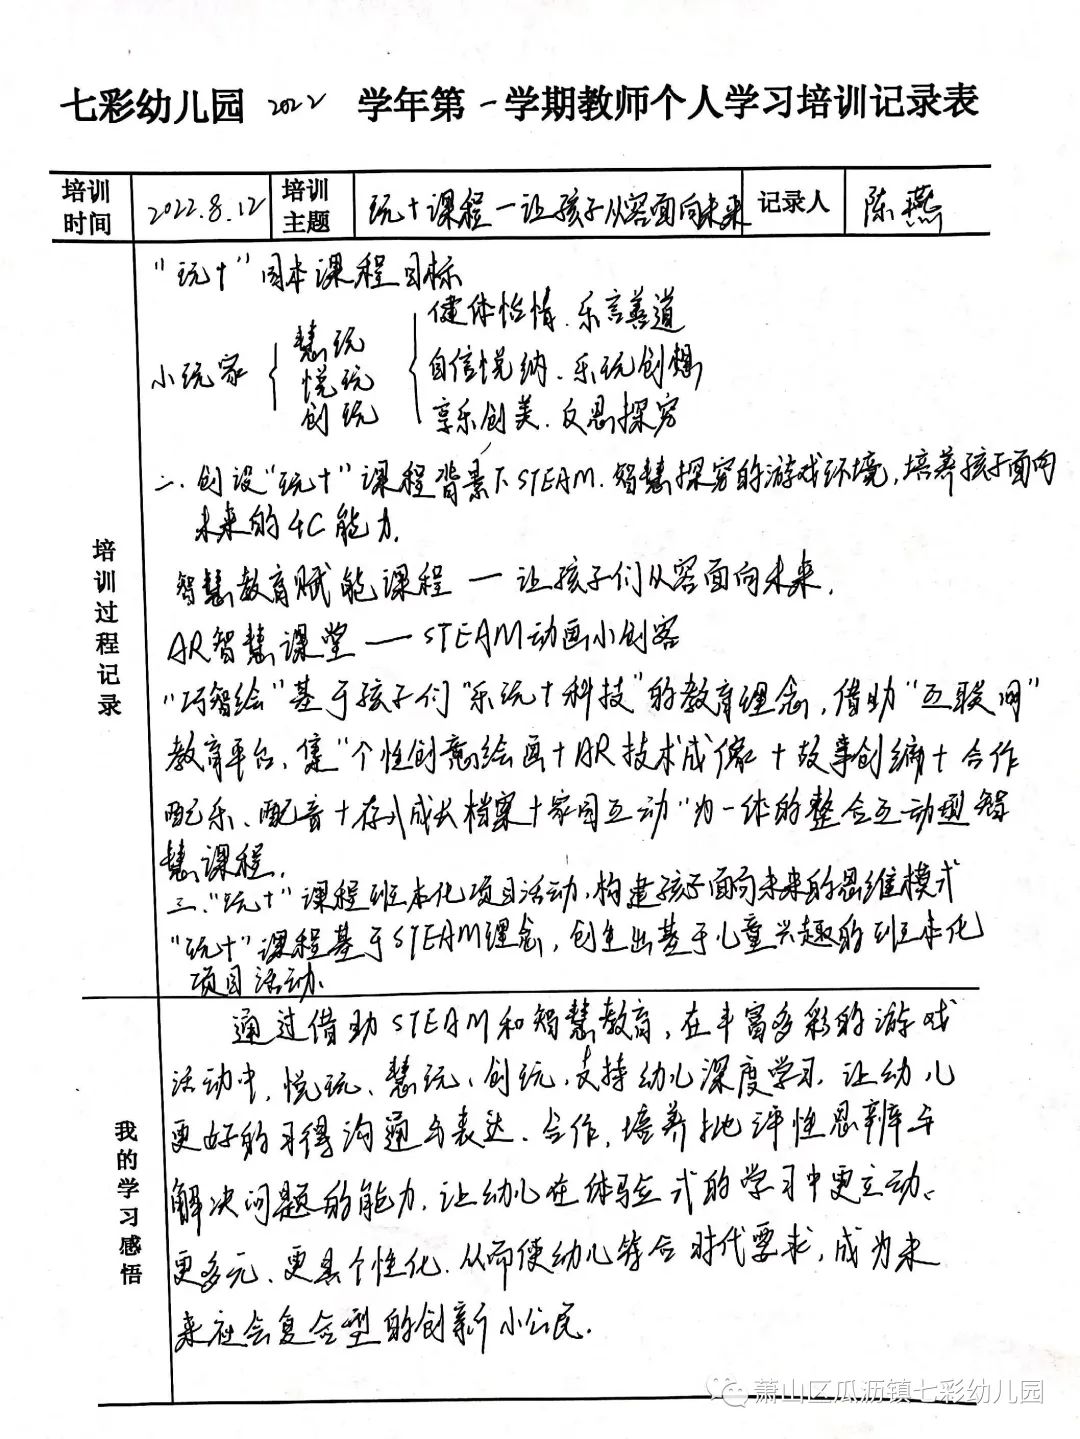 七彩幼儿园 2022 学年第一学期教师个人学习培训记录表
培训时间 2022.8.12 培训主题 玩+课程—让孩子从容面向未来 记录人 陈燕
培训过程记录
"玩+"园本课程目标
小玩家 { 慧玩 悦玩 创玩
{ 健体怡情、乐言善道
自信悦纳、乐玩创想
享乐创美、反思探究
二、创设"玩+"课程背景下STEAM、智慧探究的游戏环境,培养孩子面向
未来的4C能力.
智慧教育赋能课程 — 让孩子们从容面向未来.
AR智慧课堂 — STEAM动画小创客
"巧智绘"基于孩子们"乐玩+科技"的教育理念,借助"互联网"
教育平台、集"个性创意绘画+AR技术成像+故事创编+合作
配乐、配音+存入成长档案+家园互动"为一体的整合互动型智
慧课程.
三、"玩+"课程班本化项目活动,构建孩子面向未来的思维模式
"玩+"课程基于STEAM理念,创生出基于儿童兴趣的班本化
项目活动.
我的学习感悟
通过借助STEAM和智慧教育,在丰富多彩的游戏
活动中,悦玩、慧玩、创玩,支持幼儿深度学习,让幼儿
更好的习得沟通与表达、合作,培养批评性思辨与
解决问题的能力,让幼儿在体验式的学习中更主动、
更多元、更具个性化,从而使幼儿符合时代要求,成为未
来社会复合型的创新小公民.
萧山区瓜沥镇七彩幼儿园